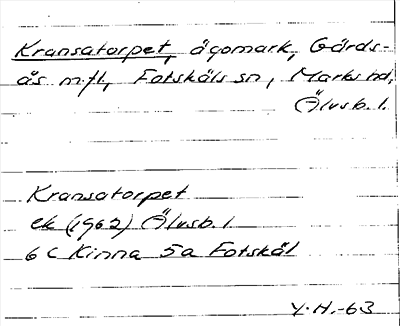 Kransatorpet, ägomark, Gärds-
ås m.fl., Fotskäls sn, Marks hd,
Älvsb. l.
Kransatorpet
ek (1962) Älvsb. l
6 C Kinna 5a Fotskäl
Y.H.-63